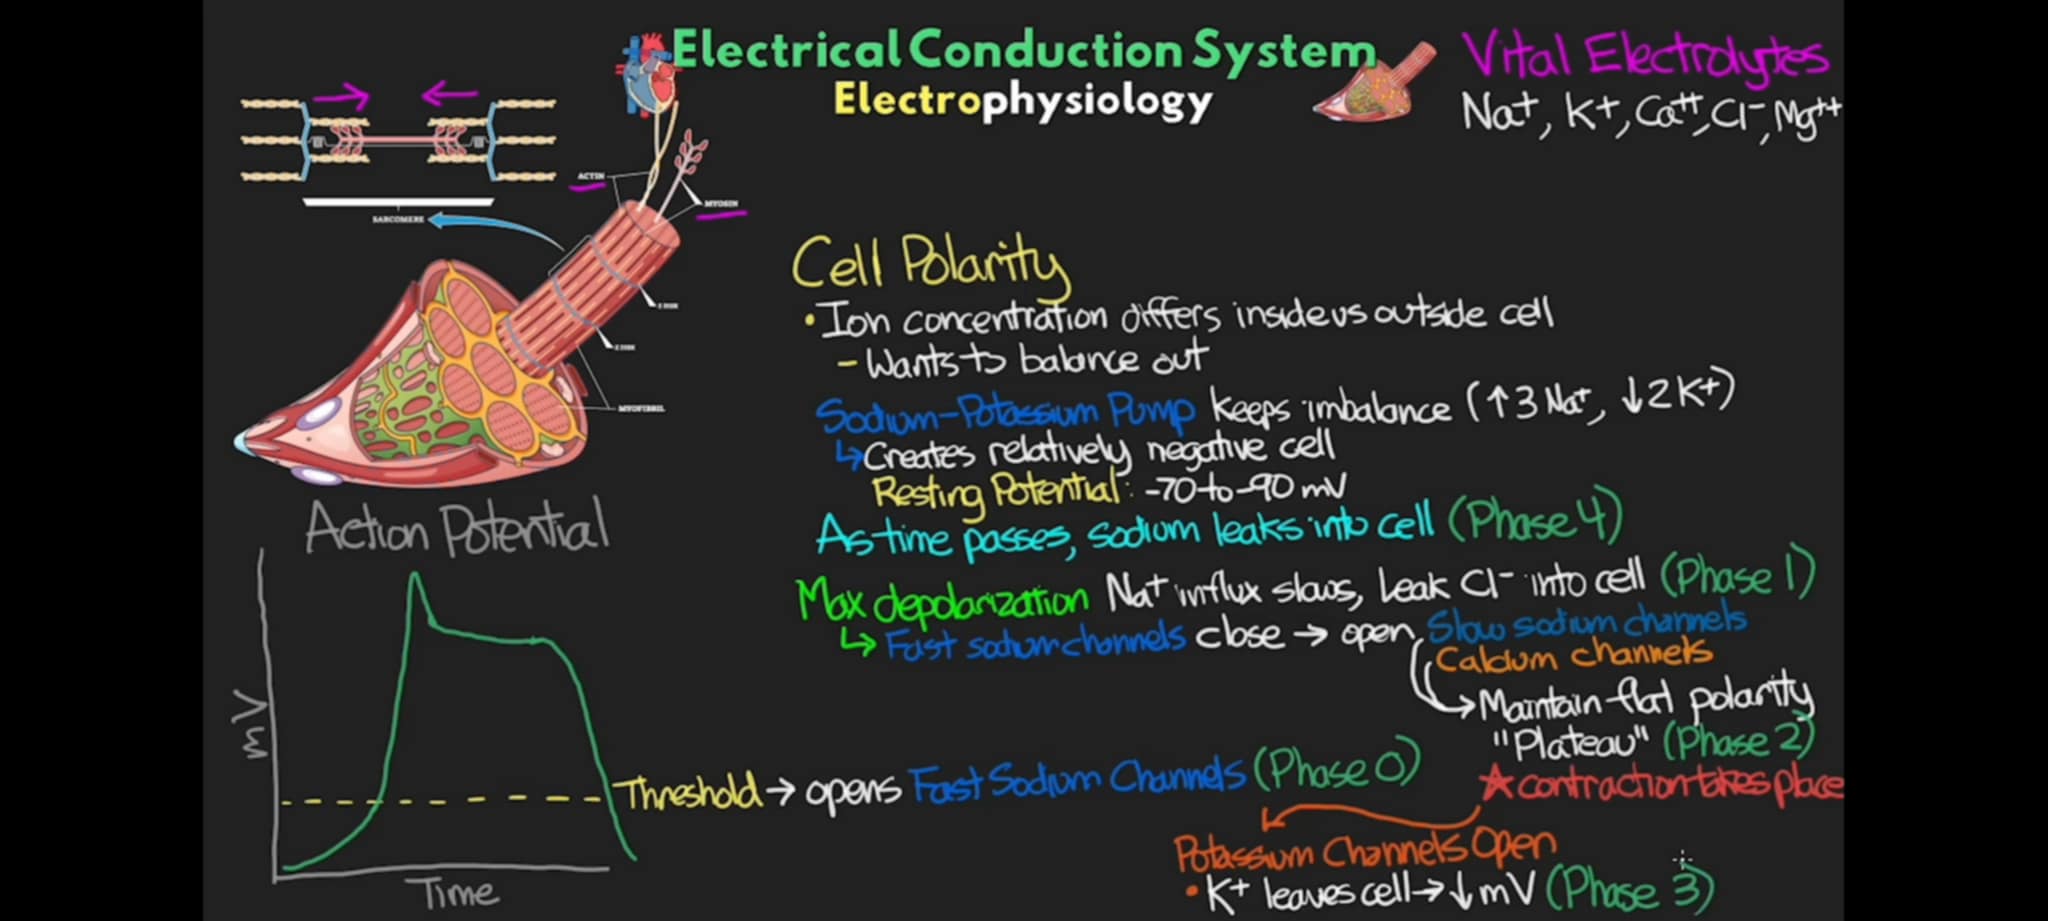 Electrical Conduction System
Electrophysiology
Vital Electrolytes
Na+, K+, Ca++, Cl-, Mg++
ACTIN
MYOSIN
SARCOMERE
Z DISK
Z DISK
MYOFIBRIL
Cell Polarity
• Ion concentration differs inside vs outside cell
- Wants to balance out
Sodium-Potassium Pump keeps imbalance (↑3 Na+, ↓2 K+)
↳ Creates relatively negative cell
Resting Potential: -70 to -90 mV
As time passes, sodium leaks into cell (Phase 4)
Max depolarization Na+ influx slows, Leak Cl- into cell (Phase 1)
↳ Fast sodium channels close → open Slow sodium channels
Calcium channels
→ Maintain flat polarity
"Plateau" (Phase 2)
★ contraction takes place
Action Potential
mV
Time
Threshold → opens Fast Sodium Channels (Phase 0)
Potassium Channels Open
• K+ leaves cell → ↓ mV (Phase 3)